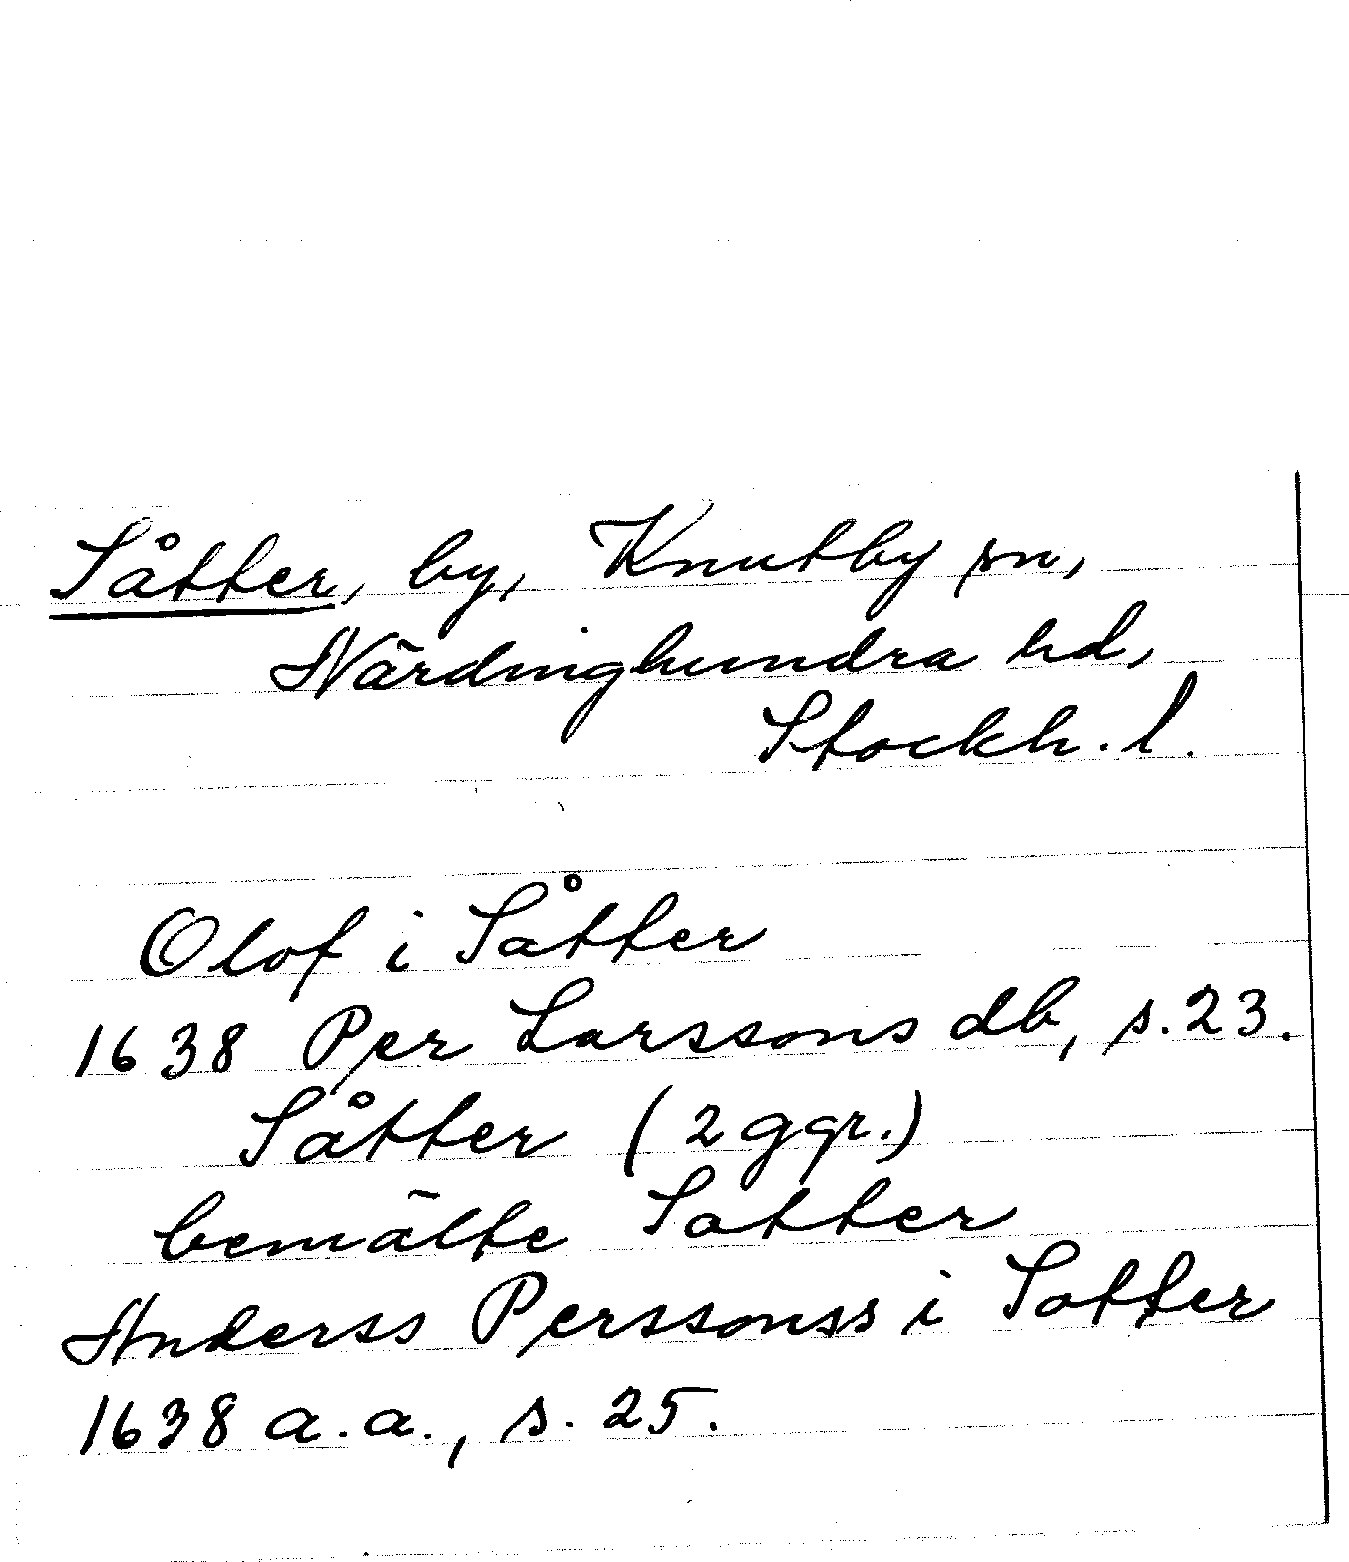 Såtter, by, Knutby sn,
Närdinghundra hd,
Stockh. l.
Olof i Såtter
1638 Per Larssons db, s. 23.
Såtter (2 ggr.)
bemälte Satter
Anderss Perssonss i Satter
1638 a.a., s. 25.